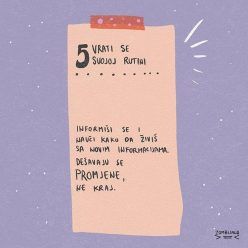 5 VRATI SE
SVOJOJ RUTINI
INFORMIŠI SE I
NAUČI KAKO DA ŽIVIŠ
SA NOVIM INFORMACIJAMA.
DEŠAVAJU SE
PROMJENE,
NE KRAJ.